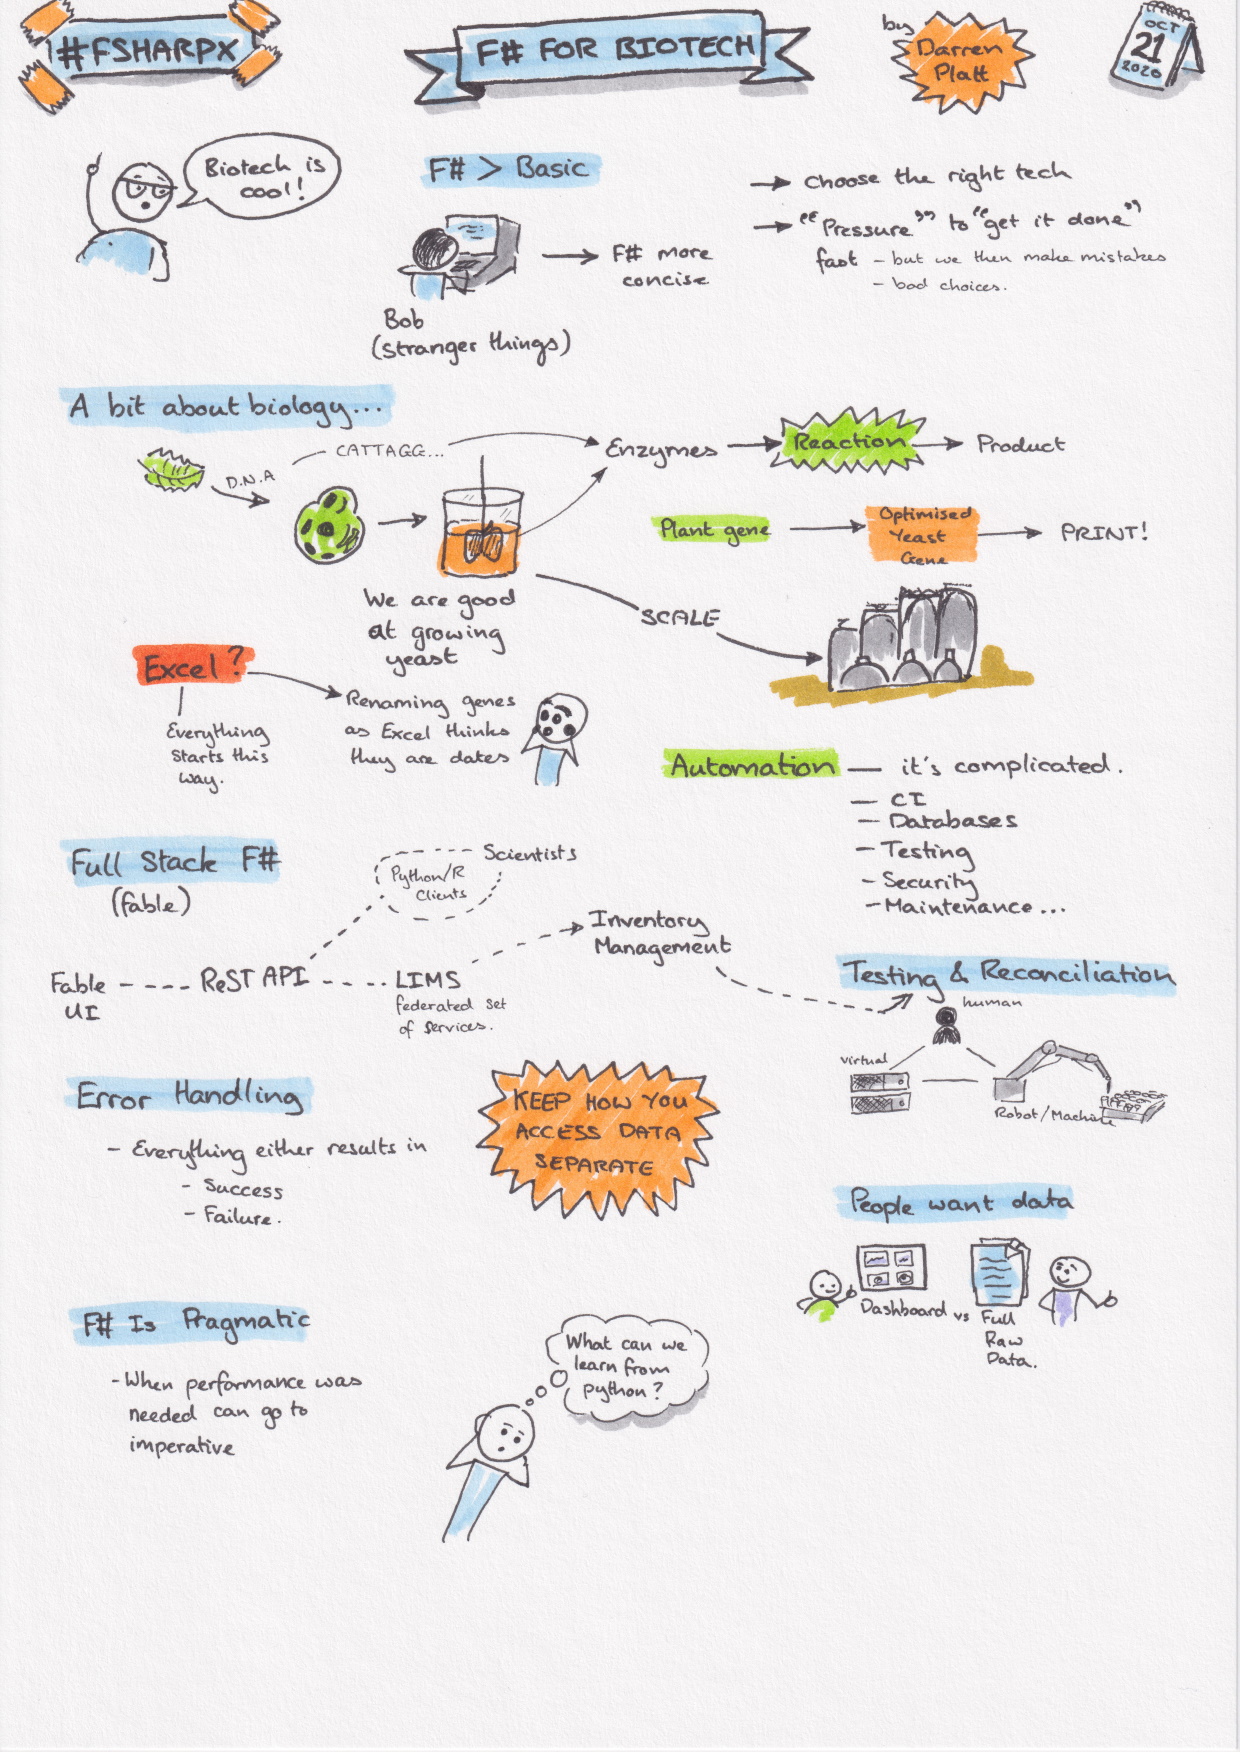 #FSHARPX
F# FOR BIOTECH
by
Darren
Platt
OCT
21
2020
Biotech is
cool!
F# > Basic
F# more
concise
Bob
(Stranger things)
Choose the right tech
"Pressure" to "get it done"
fast - but we then make mistakes
- bad choices.
A bit about biology...
D.N.A
CATTAGG...
Enzymes
Reaction
Product
Plant gene
Optimised
Yeast
Gene
PRINT!
We are good
at growing
yeast
SCALE
Excel?
Everything
starts this
way.
Renaming genes
as Excel thinks
they are dates
Automation — it's complicated.
- CI
- Databases
- Testing
- Security
- Maintenance...
Full Stack F#
(fable)
Scientists
Python/R
Clients
Fable
UI
ReST API
LIMS
federated set
of services.
Inventory
Management
Testing & Reconciliation
human
virtual
Robot/Machine
Error Handling
- Everything either results in
- Success
- Failure.
KEEP HOW YOU
ACCESS DATA
SEPARATE
People want data
Dashboard vs Full
Raw
Data.
F# Is Pragmatic
- When performance was
needed can go to
imperative
What can we
learn from
python?